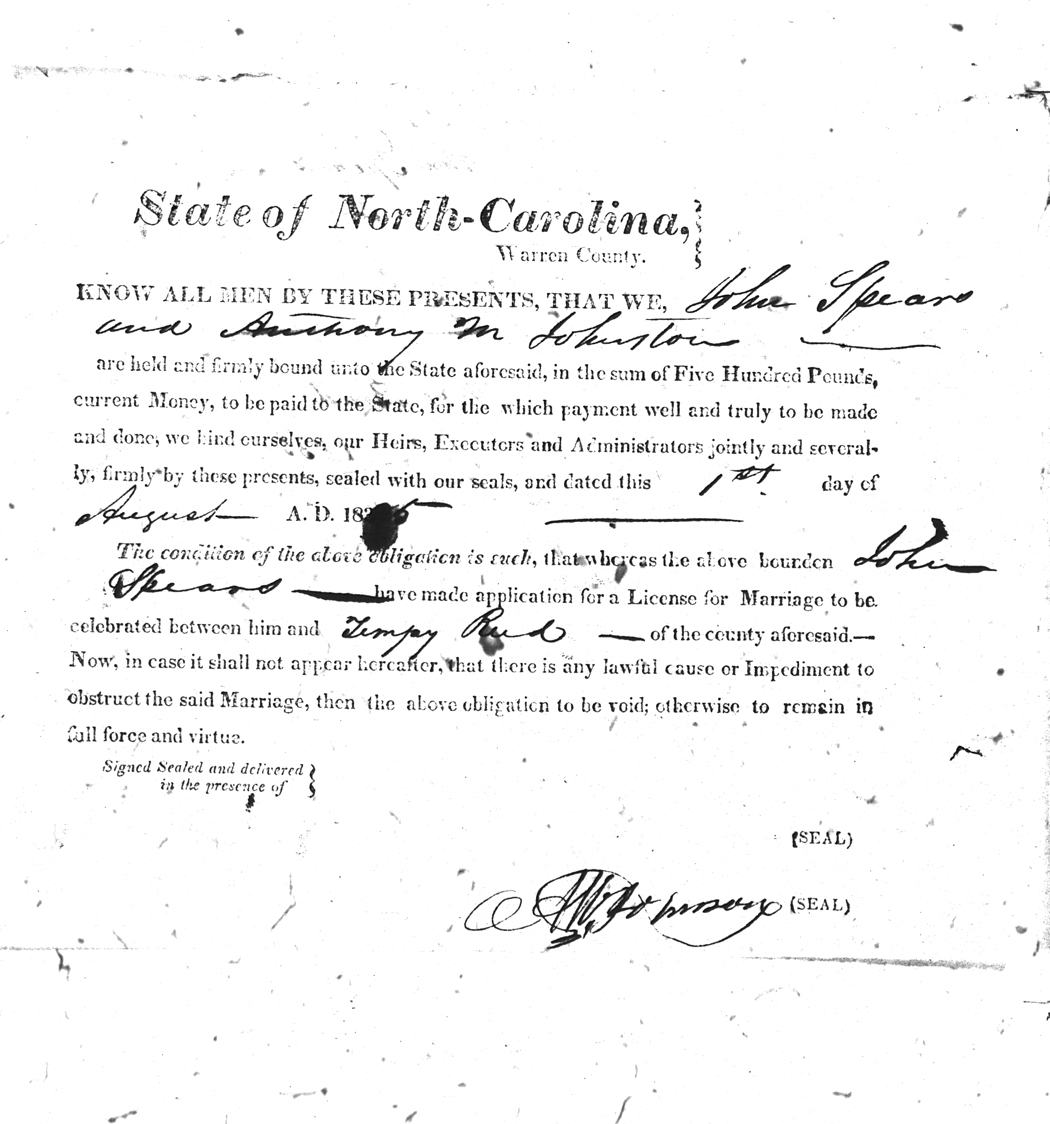 State of North-Carolina,
Warren County.
KNOW ALL MEN BY THESE PRESENTS, THAT WE, John Spears
and Anthony M Johnston
are held and firmly bound unto the State aforesaid, in the sum of Five Hundred Pounds,
current Money, to be paid to the State, for the which payment well and truly to be made
and done, we bind ourselves, our Heirs, Executors and Administrators jointly and several-
ly, firmly by these presents, sealed with our seals, and dated this 1st. day of
August A. D. 18
The condition of the above obligation is such, that whereas the above bounden John
Spears have made application for a License for Marriage to be
celebrated between him and Tempy of the county aforesaid.—
Now, in case it shall not appear hereafter, that there is any lawful cause or Impediment to
obstruct the said Marriage, then the above obligation to be void; otherwise to remain in
full force and virtue.
Signed Sealed and delivered
in the presence of
(SEAL)
(SEAL)